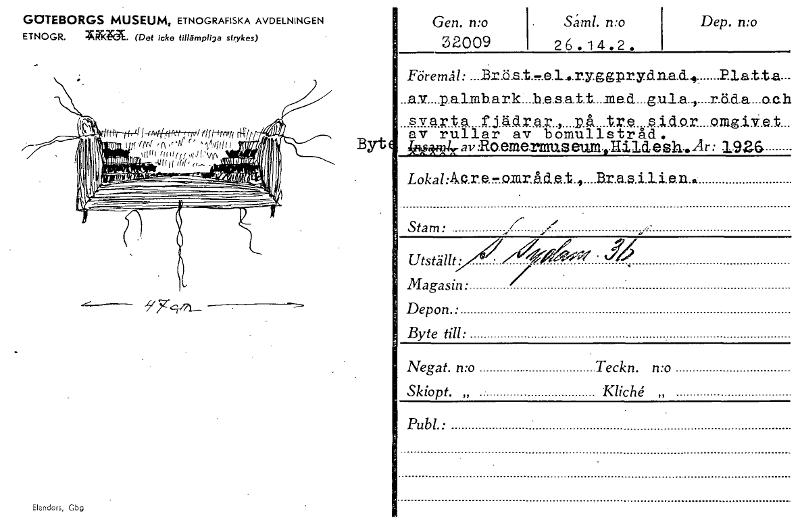 GÖTEBORGS MUSEUM, ETNOGRAFISKA AVDELNINGEN
ETNOGR. ARKEOL. (Det icke tillämpliga strykes)
47 cm
Elanders, Gbg
Gen. n:o Saml. n:o Dep. n:o
32009 26.14.2.
Föremål: Bröst-el.ryggprydnad. Platta
av palmbark besatt med gula, röda och
svarta fjädrar, på tre sidor omgivet
av rullar av bomullstråd.
Byte Insaml. av: Roemermuseum,Hildesh. År: 1926
Lokal: Acre-området, Brasilien.
Stam:
Utställt: S. Sydam. 36
Magasin:
Depon.:
Byte till:
Negat. n:o Teckn. n:o
Skiopt. „ Kliché „
Publ.: